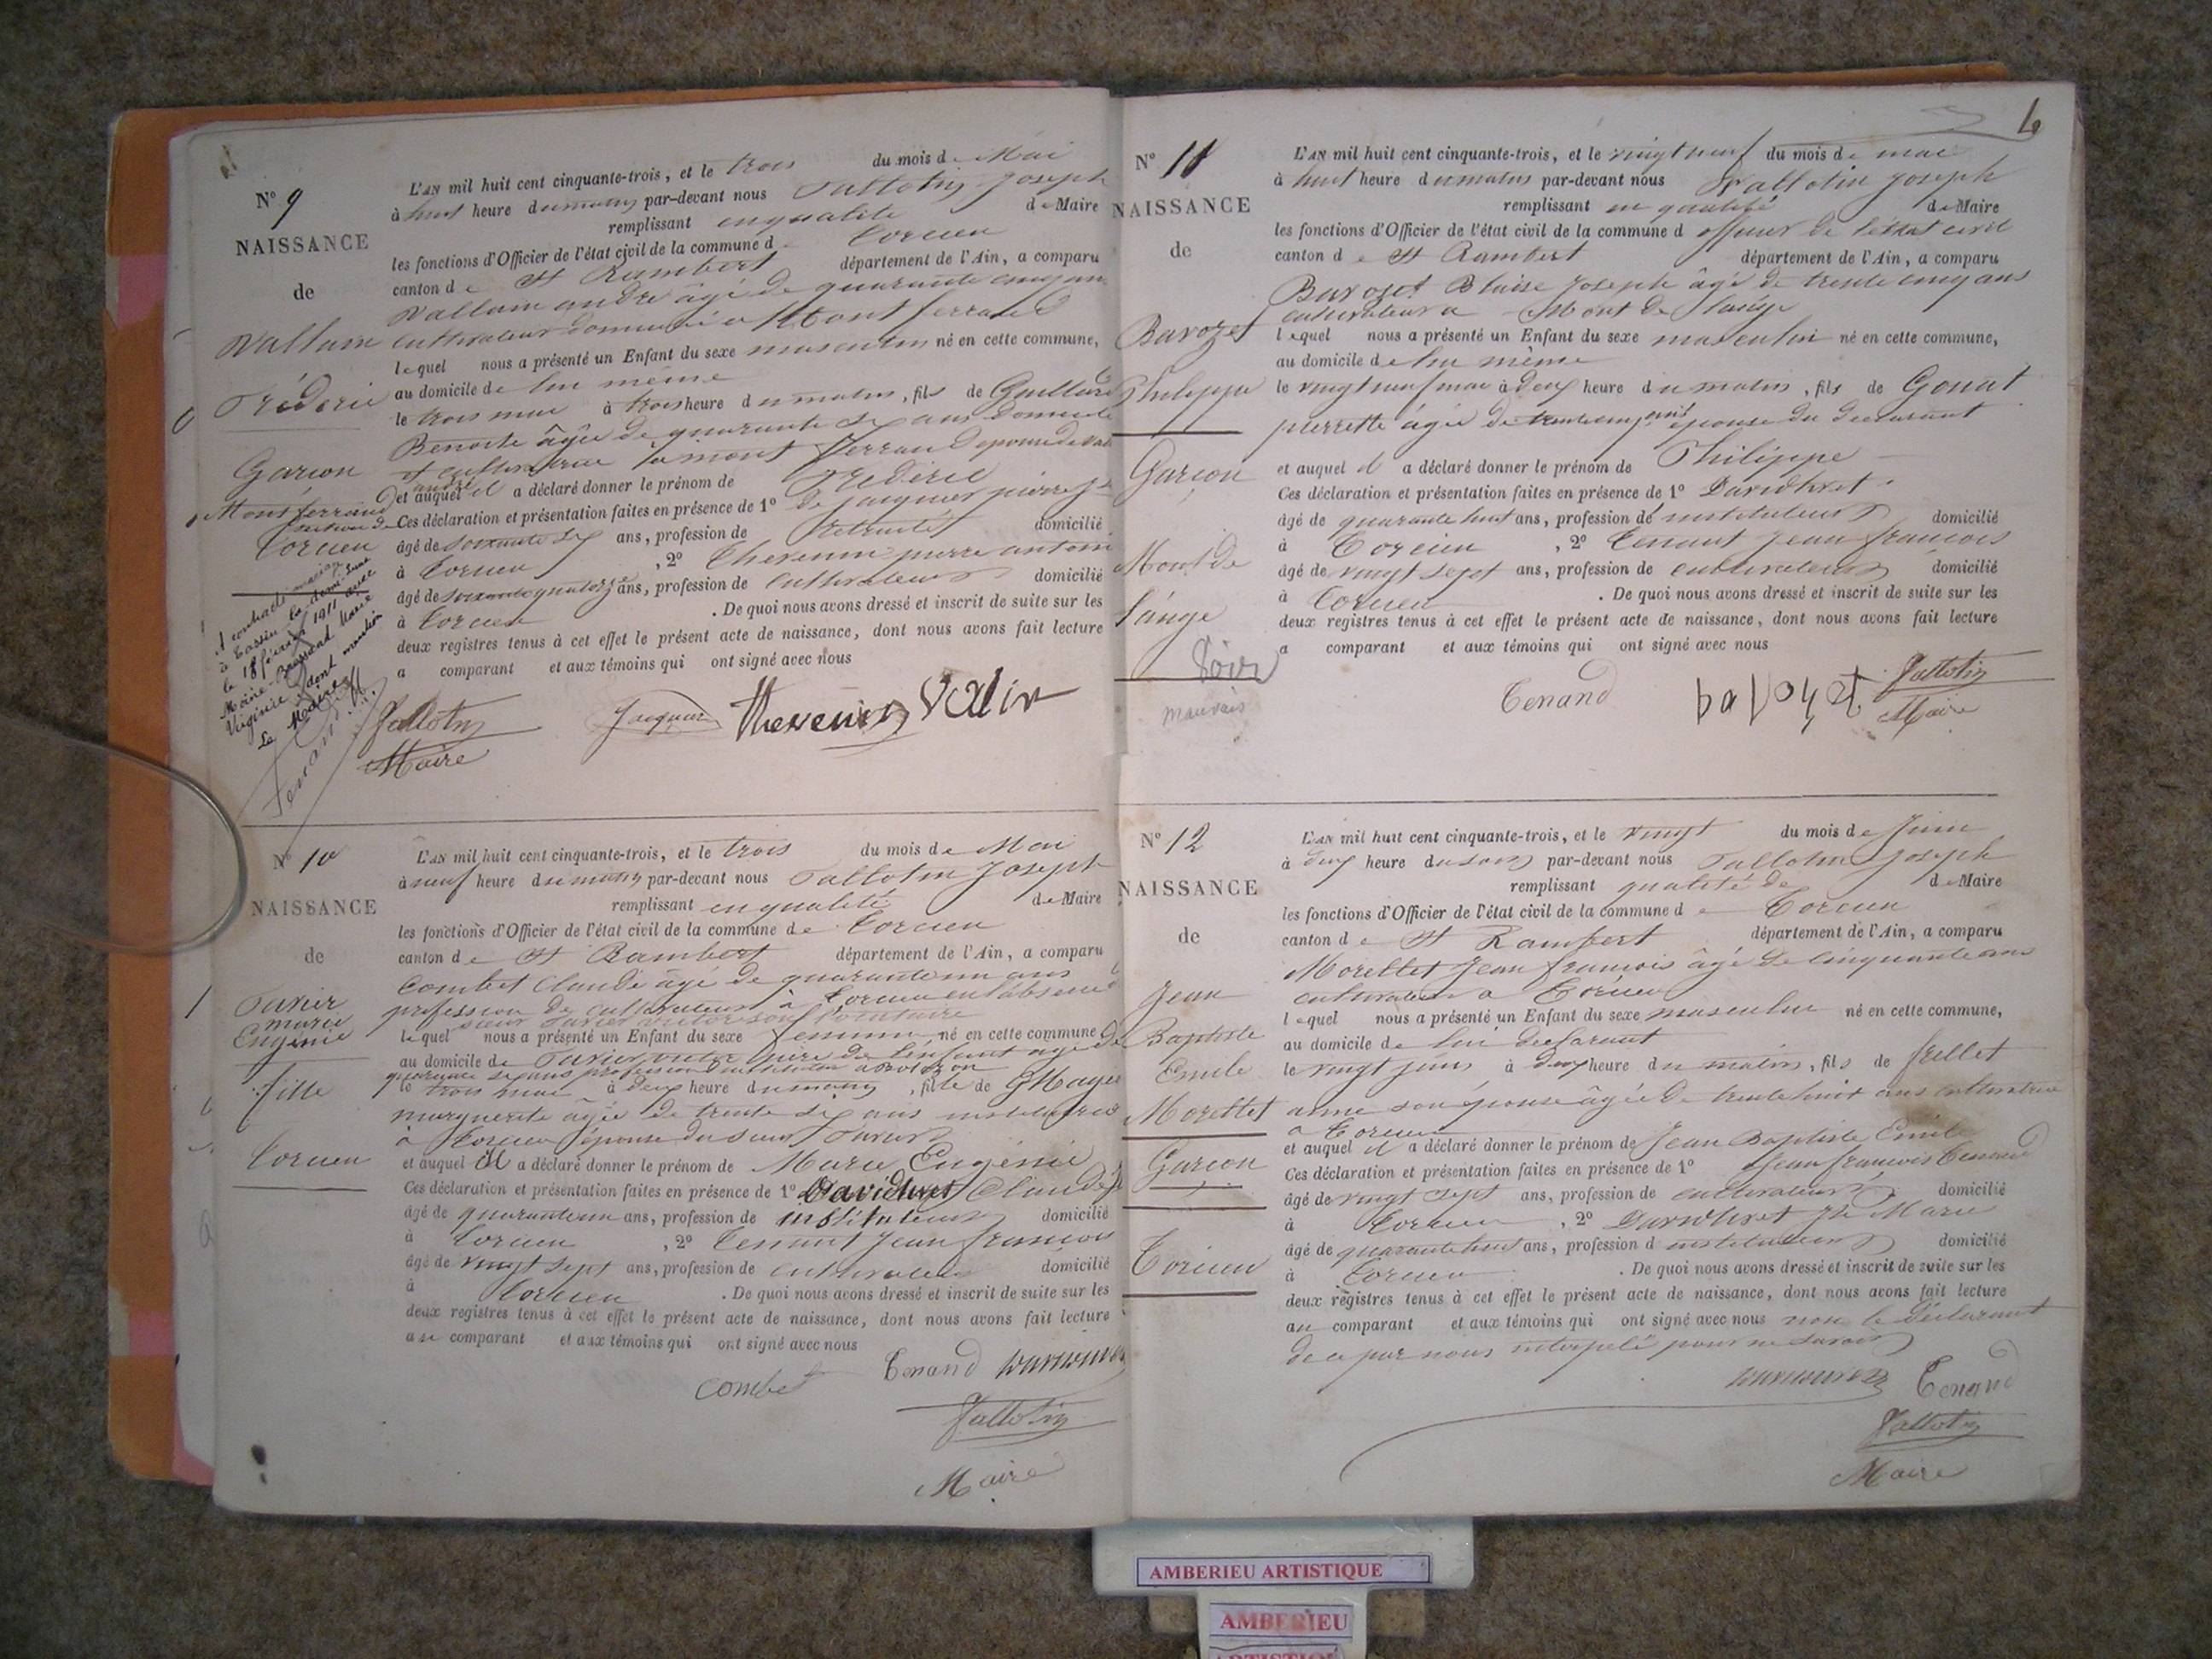 N° 9
NAISSANCE
de
Vallam
Fréderic
Garçon
Montferrand
section de
Torcieu
A contracté mariage
le 18 février 1911 avec
Virginie dont mention
Le Maire
L'AN mil huit cent cinquante-trois, et le trois du mois de Mai
à huit heure du matin par-devant nous Vallotin Joseph
remplissant en qualité de Maire
les fonctions d'Officier de l'état civil de la commune d Torcieu
canton de St Rambert département de l'Ain, a comparu
Vallam andré âgé de quarante cinq ans
cultivateur domicilié a Montferrand
lequel nous a présenté un Enfant du sexe masculin né en cette commune,
au domicile de lui même
le trois mai à trois heure du matin, fils de Guillard
Benoite âgée de quarante six ans domicile
et auquel il a déclaré donner le prénom de Fréderic
Ces déclaration et présentation faites en présence de 1° de Jacquier pierre
âgé de soixante six ans, profession de Retraité domicilié
à Torcieu, 2° Thevenin pierre antoine
âgé de soixante quatorze ans, profession de cultivateur domicilié
à Torcieu. De quoi nous avons dressé et inscrit de suite sur les
deux registres tenus à cet effet le présent acte de naissance, dont nous avons fait lecture
a comparant et aux témoins qui ont signé avec nous
Vallotin Jacquier Thevenin
Maire
N° 10
NAISSANCE
de
Tavier
marie
Eugénie
fille
Torcieu
L'AN mil huit cent cinquante-trois, et le trois du mois de Mai
à neuf heure du matin par-devant nous Vallotin Joseph
remplissant en qualité de Maire
les fonctions d'Officier de l'état civil de la commune de Torcieu
canton de St Rambert département de l'Ain, a comparu
Combet Claude âgé de quarante un ans
profession de cultivateur à Torcieu en l'absence
lequel nous a présenté un Enfant du sexe féminin né en cette commune
au domicile de Tavier victor père de l'enfant âgé de
le trois mai à deux heure du matin, fille de
marguerite âgée de trente six ans institutrice
a Torcieu épouse du sieur Tavier
et auquel il a déclaré donner le prénom de Marie Eugénie
Ces déclaration et présentation faites en présence de 1° Davidhret Claude
âgé de quarante un ans, profession de instituteur domicilié
à Torcieu, 2° Tenant Jean françois
âgé de vingt sept ans, profession de cultivateur domicilié
à Torcieu. De quoi nous avons dressé et inscrit de suite sur les
deux registres tenus à cet effet le présent acte de naissance, dont nous avons fait lecture
au comparant et aux témoins qui ont signé avec nous
combet Tenand
Vallotin
Maire
N° 11
NAISSANCE
de
Barozet
Philippe
Garçon
Mont de
Lange
Voir
mauvais
L'AN mil huit cent cinquante-trois, et le vingt neuf du mois de mai
à huit heure du matin par-devant nous Vallotin Joseph
remplissant en qualité de Maire
les fonctions d'Officier de l'état civil de la commune d officier de l'état civil
canton de St Rambert département de l'Ain, a comparu
Barozet Blaise Joseph âgé de trente cinq ans
cultivateur a Mont de Lange
lequel nous a présenté un Enfant du sexe masculin né en cette commune,
au domicile de lui même
le vingt neuf mai à deux heure du matin, fils de Gonat
pierrette âgée de trente cinq ans épouse du déclarant
et auquel il a déclaré donner le prénom de Philippe
Ces déclaration et présentation faites en présence de 1° Davidhret
âgé de quarante huit ans, profession de instituteur domicilié
à Torcieu, 2° Tenant Jean françois
âgé de vingt sept ans, profession de cultivateur domicilié
à Torcieu. De quoi nous avons dressé et inscrit de suite sur les
deux registres tenus à cet effet le présent acte de naissance, dont nous avons fait lecture
a comparant et aux témoins qui ont signé avec nous
Tenand Vallotin
Maire
N° 12
NAISSANCE
de
Jean
Baptiste
Emile
Morettet
Garçon
Torcieu
L'AN mil huit cent cinquante-trois, et le vingt du mois de Juin
à deux heure du soir par-devant nous Vallotin Joseph
remplissant qualité de de Maire
les fonctions d'Officier de l'état civil de la commune de Torcieu
canton de St Rambert département de l'Ain, a comparu
Morettet Jean françois âgé de cinquante ans
cultivateur a Torcieu
lequel nous a présenté un Enfant du sexe masculin né en cette commune,
au domicile de lui déclarant
le vingt juin à deux heure du matin, fils de frellet
anne son épouse âgée de trente huit ans cultivatrice
a Torcieu
et auquel il a déclaré donner le prénom de Jean Baptiste Emile
Ces déclaration et présentation faites en présence de 1° Jean françois Tenand
âgé de vingt sept ans, profession de cultivateur domicilié
à Torcieu, 2° Davidhret Marie
âgé de quarante huit ans, profession d instituteur domicilié
à Torcieu. De quoi nous avons dressé et inscrit de suite sur les
deux registres tenus à cet effet le présent acte de naissance, dont nous avons fait lecture
au comparant et aux témoins qui ont signé avec nous non le déclarant
de ce par nous interpelé pour ne savoir
Tenand
Vallotin
Maire
AMBERIEU ARTISTIQUE
AMBERIEU
ARTISTIQUE